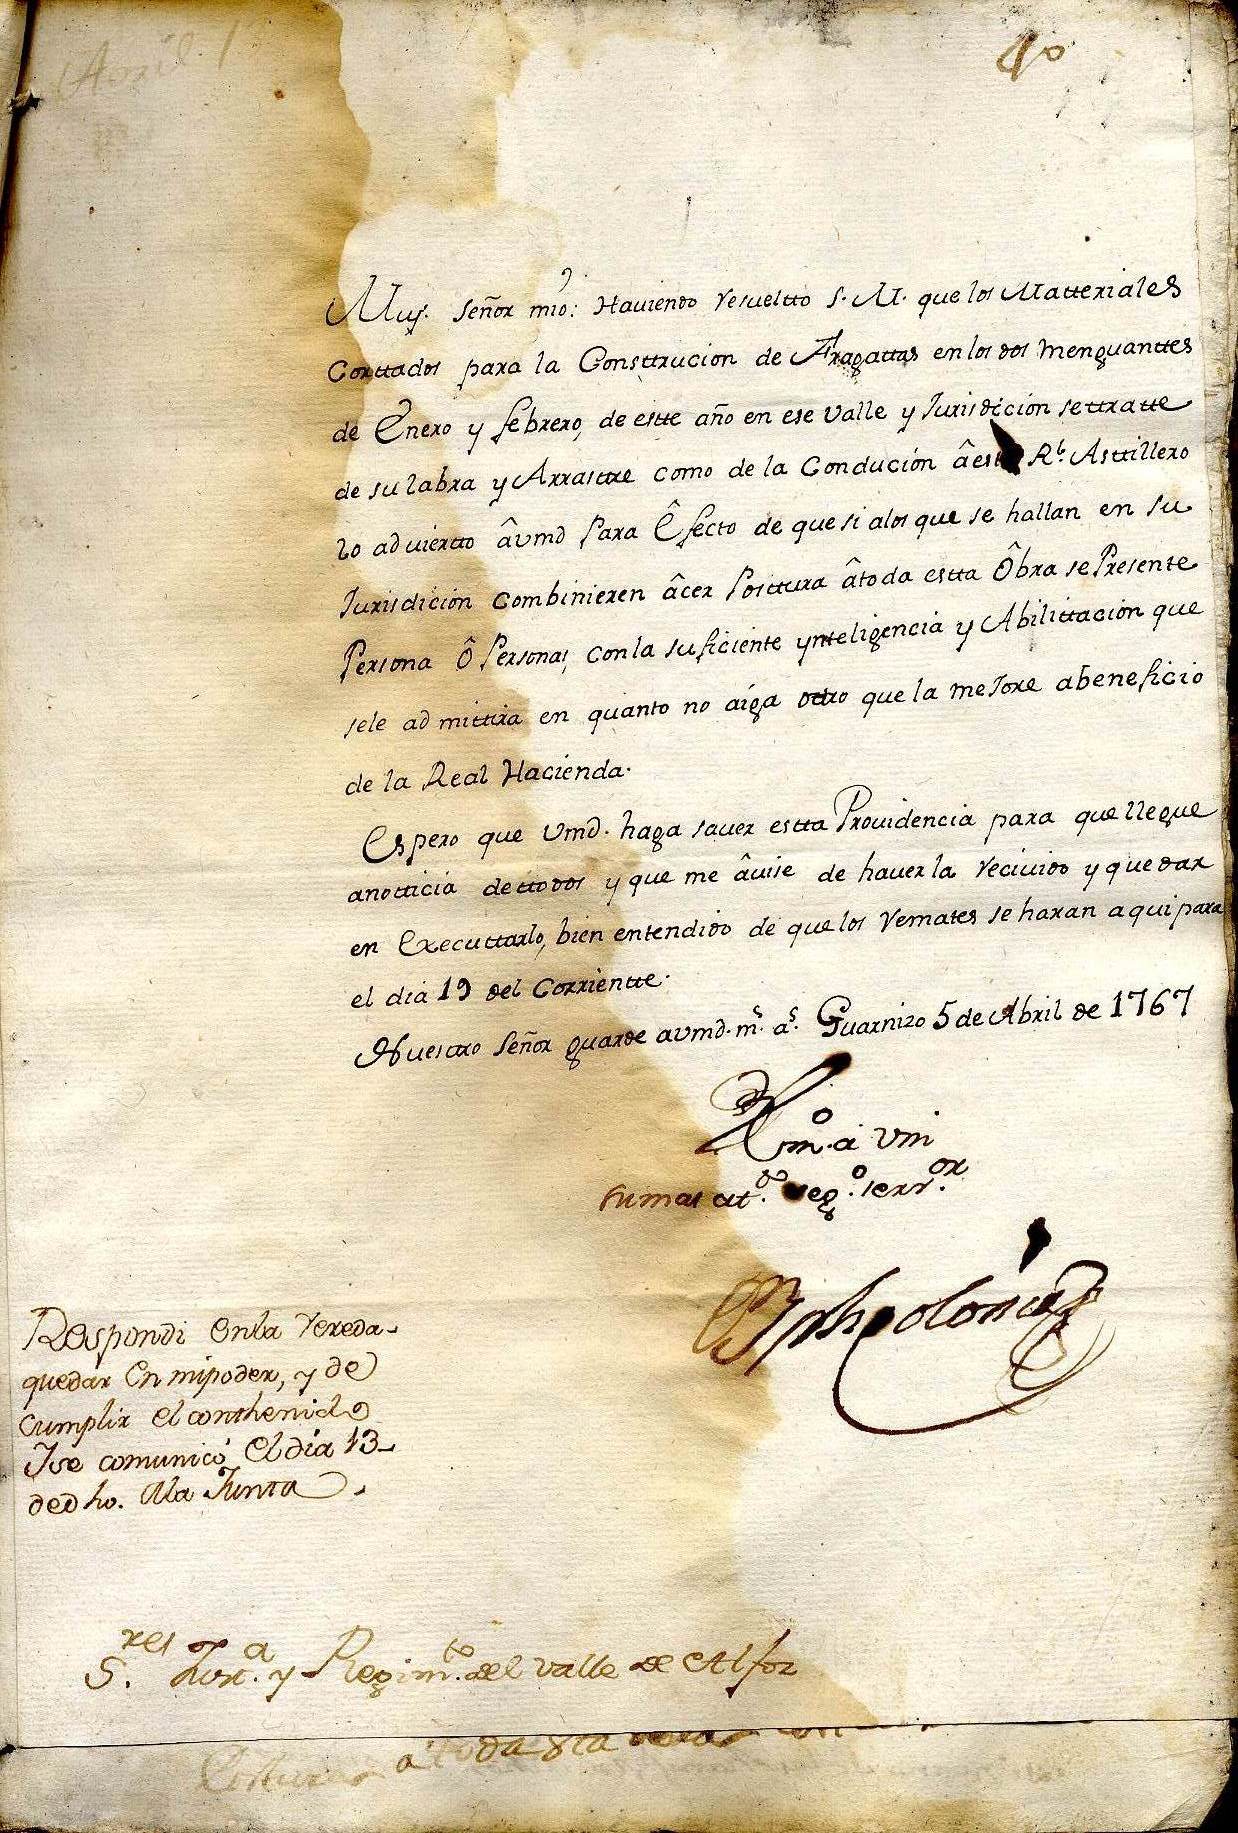 Abril
4º
Muy Señor mio: Haviendo resueltto S. M. que los Matteriales
Corttados para la Consttrucion de Fragattas en los dos menguanttes
de Enero y febrero, de estte año en ese Valle y Jurisdicion se ttratte
de su labra y Arrasttre como de la Condución âeste Rl. Asttillero
lo adviertto âvmd para Êfecto de que si alos que se hallan en su
Jurisdicion Combinieren âcer Posttura âtoda estta Ôbra se Presente
Persona Ô Personas, con la suficiente ynteligencia y Abilittación que
sele admittira en quanto no aiga ottro que la meJore abeneficio
de la Real Hacienda.
Espero que Vmd. haga saver estta Providencia para que llegue
anotticia de ttodos y que me âvise de haverla recivido y quedar
en Executtarlo, bien entendido de que los remates se haran aqui para
el dia 19 del Corrientte.
Nuesttro Señor guarde avmd. ms. as. Guarnizo 5 de Abril de 1767
mo. a Vm
su mas atto. sego. servor
Respondi Enla Vereda
quedar En mi poder, y de
cumplir el conthenido
Y se comunicó El dia 13
de dho. Ala Junta
Sres. Justa. y Regimto. del Valle de Alfoz
Postura a toda esta obra